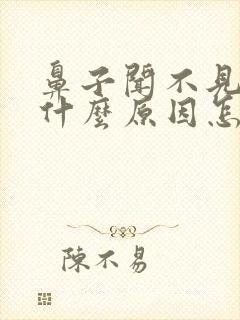 鼻子聞不見
什麼原因怎
陳不易